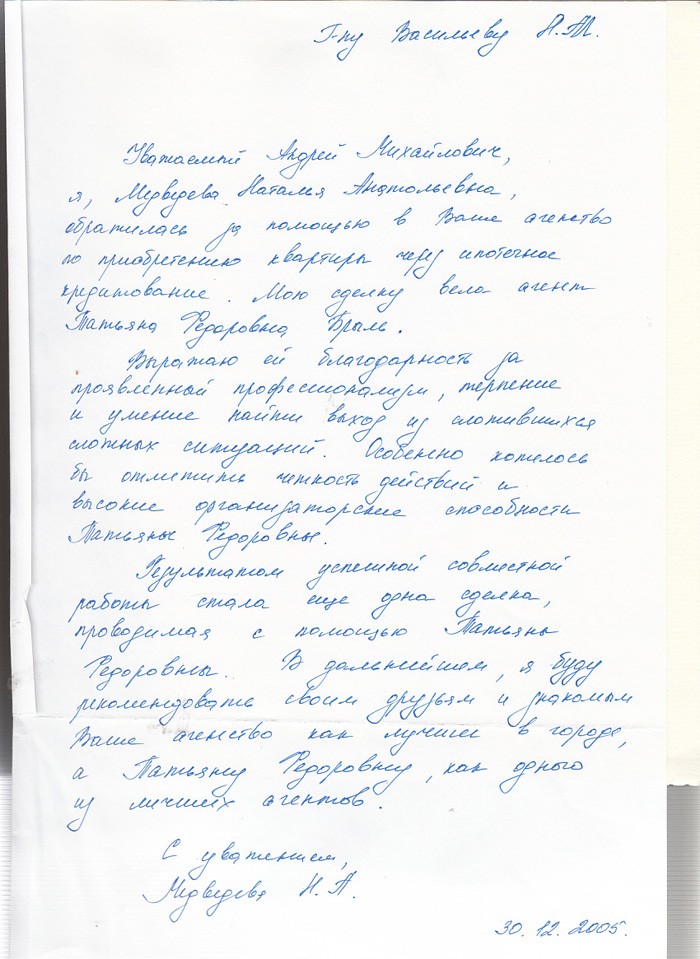 Г-ну Васильеву А.М.
Уважаемый Андрей Михайлович,
я, Медведева Наталья Анатольевна,
обратилась за помощью в Ваше агенство
по приобретению квартиры через ипотечное
кредитование. Мою сделку вела агент
Татьяна Федоровна Брыль.
Выражаю ей благодарность за
проявленный профессионализм, терпение
и умение найти выход из сложившихся
сложных ситуаций. Особенно хотелось
бы отметить четкость действий и
высокие организаторские способности
Татьяны Федоровны.
Результатом успешной совместной
работы стала еще одна сделка,
проводимая с помощью Татьяны
Федоровны. В дальнейшем, я буду
рекомендовать своим друзьям и знакомым
Ваше агенство как лучшее в городе,
а Татьяну Федоровну, как одного
из лучших агентов.
С уважением,
Медведева Н.А.
30.12.2005.